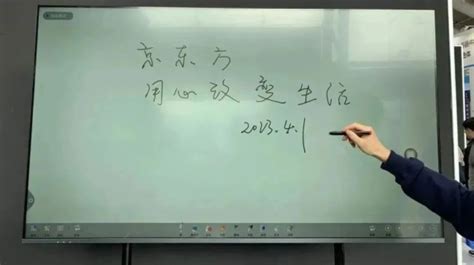 京东方
用心改变生活
2023.4.1